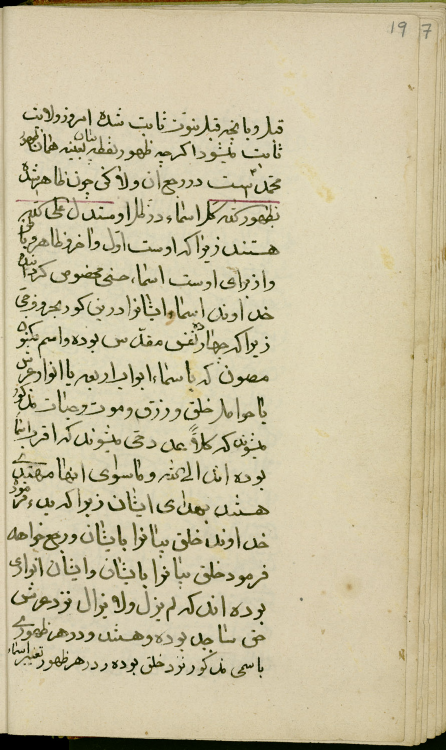 19 7
قبل و بانچه قبل نبوت ثابت شده امروز ولایت
ثابت نمیشود اگر چه ظهور نقطه بیان بعینه همان ظهور
محمد است در رجع آن ولکن چون ظاهر شده
بظهور کل اسماء در ظل او مستدل علی
هستند زیرا که اوست اول و اخر و ظاهر و باطن
و از برای اوست اسماء حسنی مخصوص کردانیده
خداوند اسماء ایشانرا درین کور بحروف حی
زیرا که چهارده نفس مقدس بوده و اسم مکنون
مصون که باسماء ابواب اربعه یا انوار عرش
یا حوامل خلق و رزق و موت و حیات مذکور
میشوند که کلاً عدد حی میشوند که اقرب اسماء
بوده اند الی الله و ماسوای انها مهتدی
هستند بهدای ایشان زیرا که بدء فرمود
خداوند خلق بیانرا بایشان و رجع خواهد
فرمود خلق بیانرا بایشان و ایشان انواری
بوده اند که لم یزل ولا یزال نزد عرش
حق ساجد بوده و هستند و در هر ظهوری
باسمی مذکور نزد خلق بوده و در هر ظهور تغییر اسماء